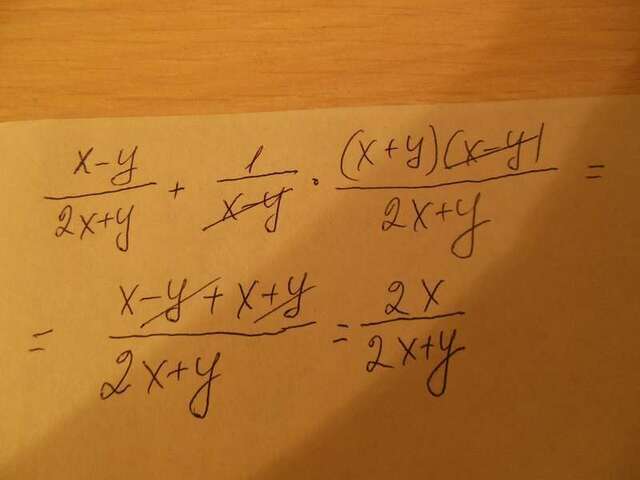 x-y/2x+y + 1/x-y · (x+y)(x-y)/2x+y =
= x-y+x+y/2x+y = 2x/2x+y